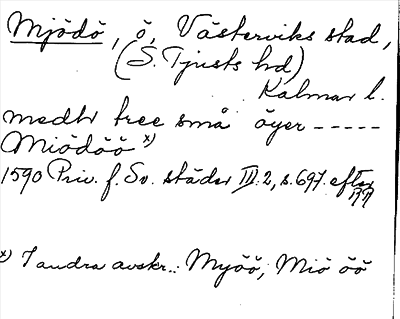 Mjödö, ö, Västerviks stad,
(S. Tjusts hd)
Kalmar l.
medh tree små öyer -----
Miödöö x)
1590 Priv. f. Sv. städer III:2, s. 697. efter
x) I andra avskr.: Myöö, Miö öö